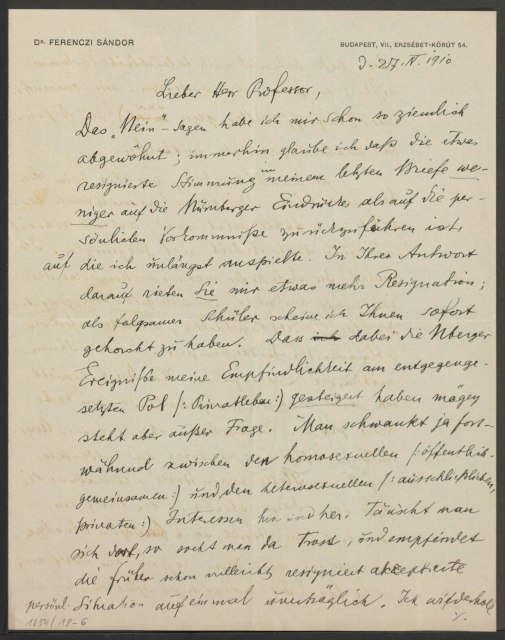 Dr. FERENCZI SÁNDOR
BUDAPEST, VII., ERZSÉBET-KÖRÚT 54.
d. 27. IV. 1910
Lieber Herr Professor,
Das „Nein“-sagen habe ich mir schon so ziemlich
abgewöhnt; immerhin glaube ich daß die etwas
resignierte Stimmung in meinem letzten Briefe we-
niger auf die Nürnberger Eindrücke als auf die per-
sönlichen Vorkommniße zurückzuführen ist,
auf die ich unlängst anspielte. In Ihrer Antwort
darauf rieten Sie mir etwas mehr Resignation;
als folgsamer Schüler scheine ich Ihnen sofort
gehorcht zu haben. Dass ich dabei die Nberger
Ereigniße meine Empfindlichkeit am entgegenge-
setzten Pol (: Privatleben :) gesteigert haben mögen
steht aber außer Frage. Man schwankt ja fort-
während zwischen den homosexuellen (: öffentlich-
gemeinsamen :) und den heterosexuellen (: ausschließlichen,
privaten :) Interessen hin und her. Täuscht man
sich dort, so sucht man da Trost, und empfindet
die früher schon vielleicht resigniert akzeptierte
persönl. Situation auf einmal unerträglich. Ich wiederhole
1054/18-6
./.